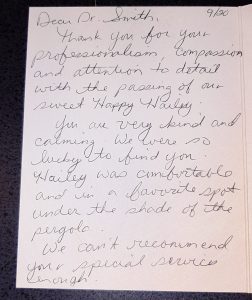 9/20
Dear Dr. Smith,
Thank you for your
professionalism, compassion
and attention to detail
with the passing of our
sweet Happy Hailey.
You are very kind and
calming. We were so
lucky to find you.
Hailey was comfortable
and in a favorite spot
under the shade of the
pergola.
We can't recommend
your special services
enough!